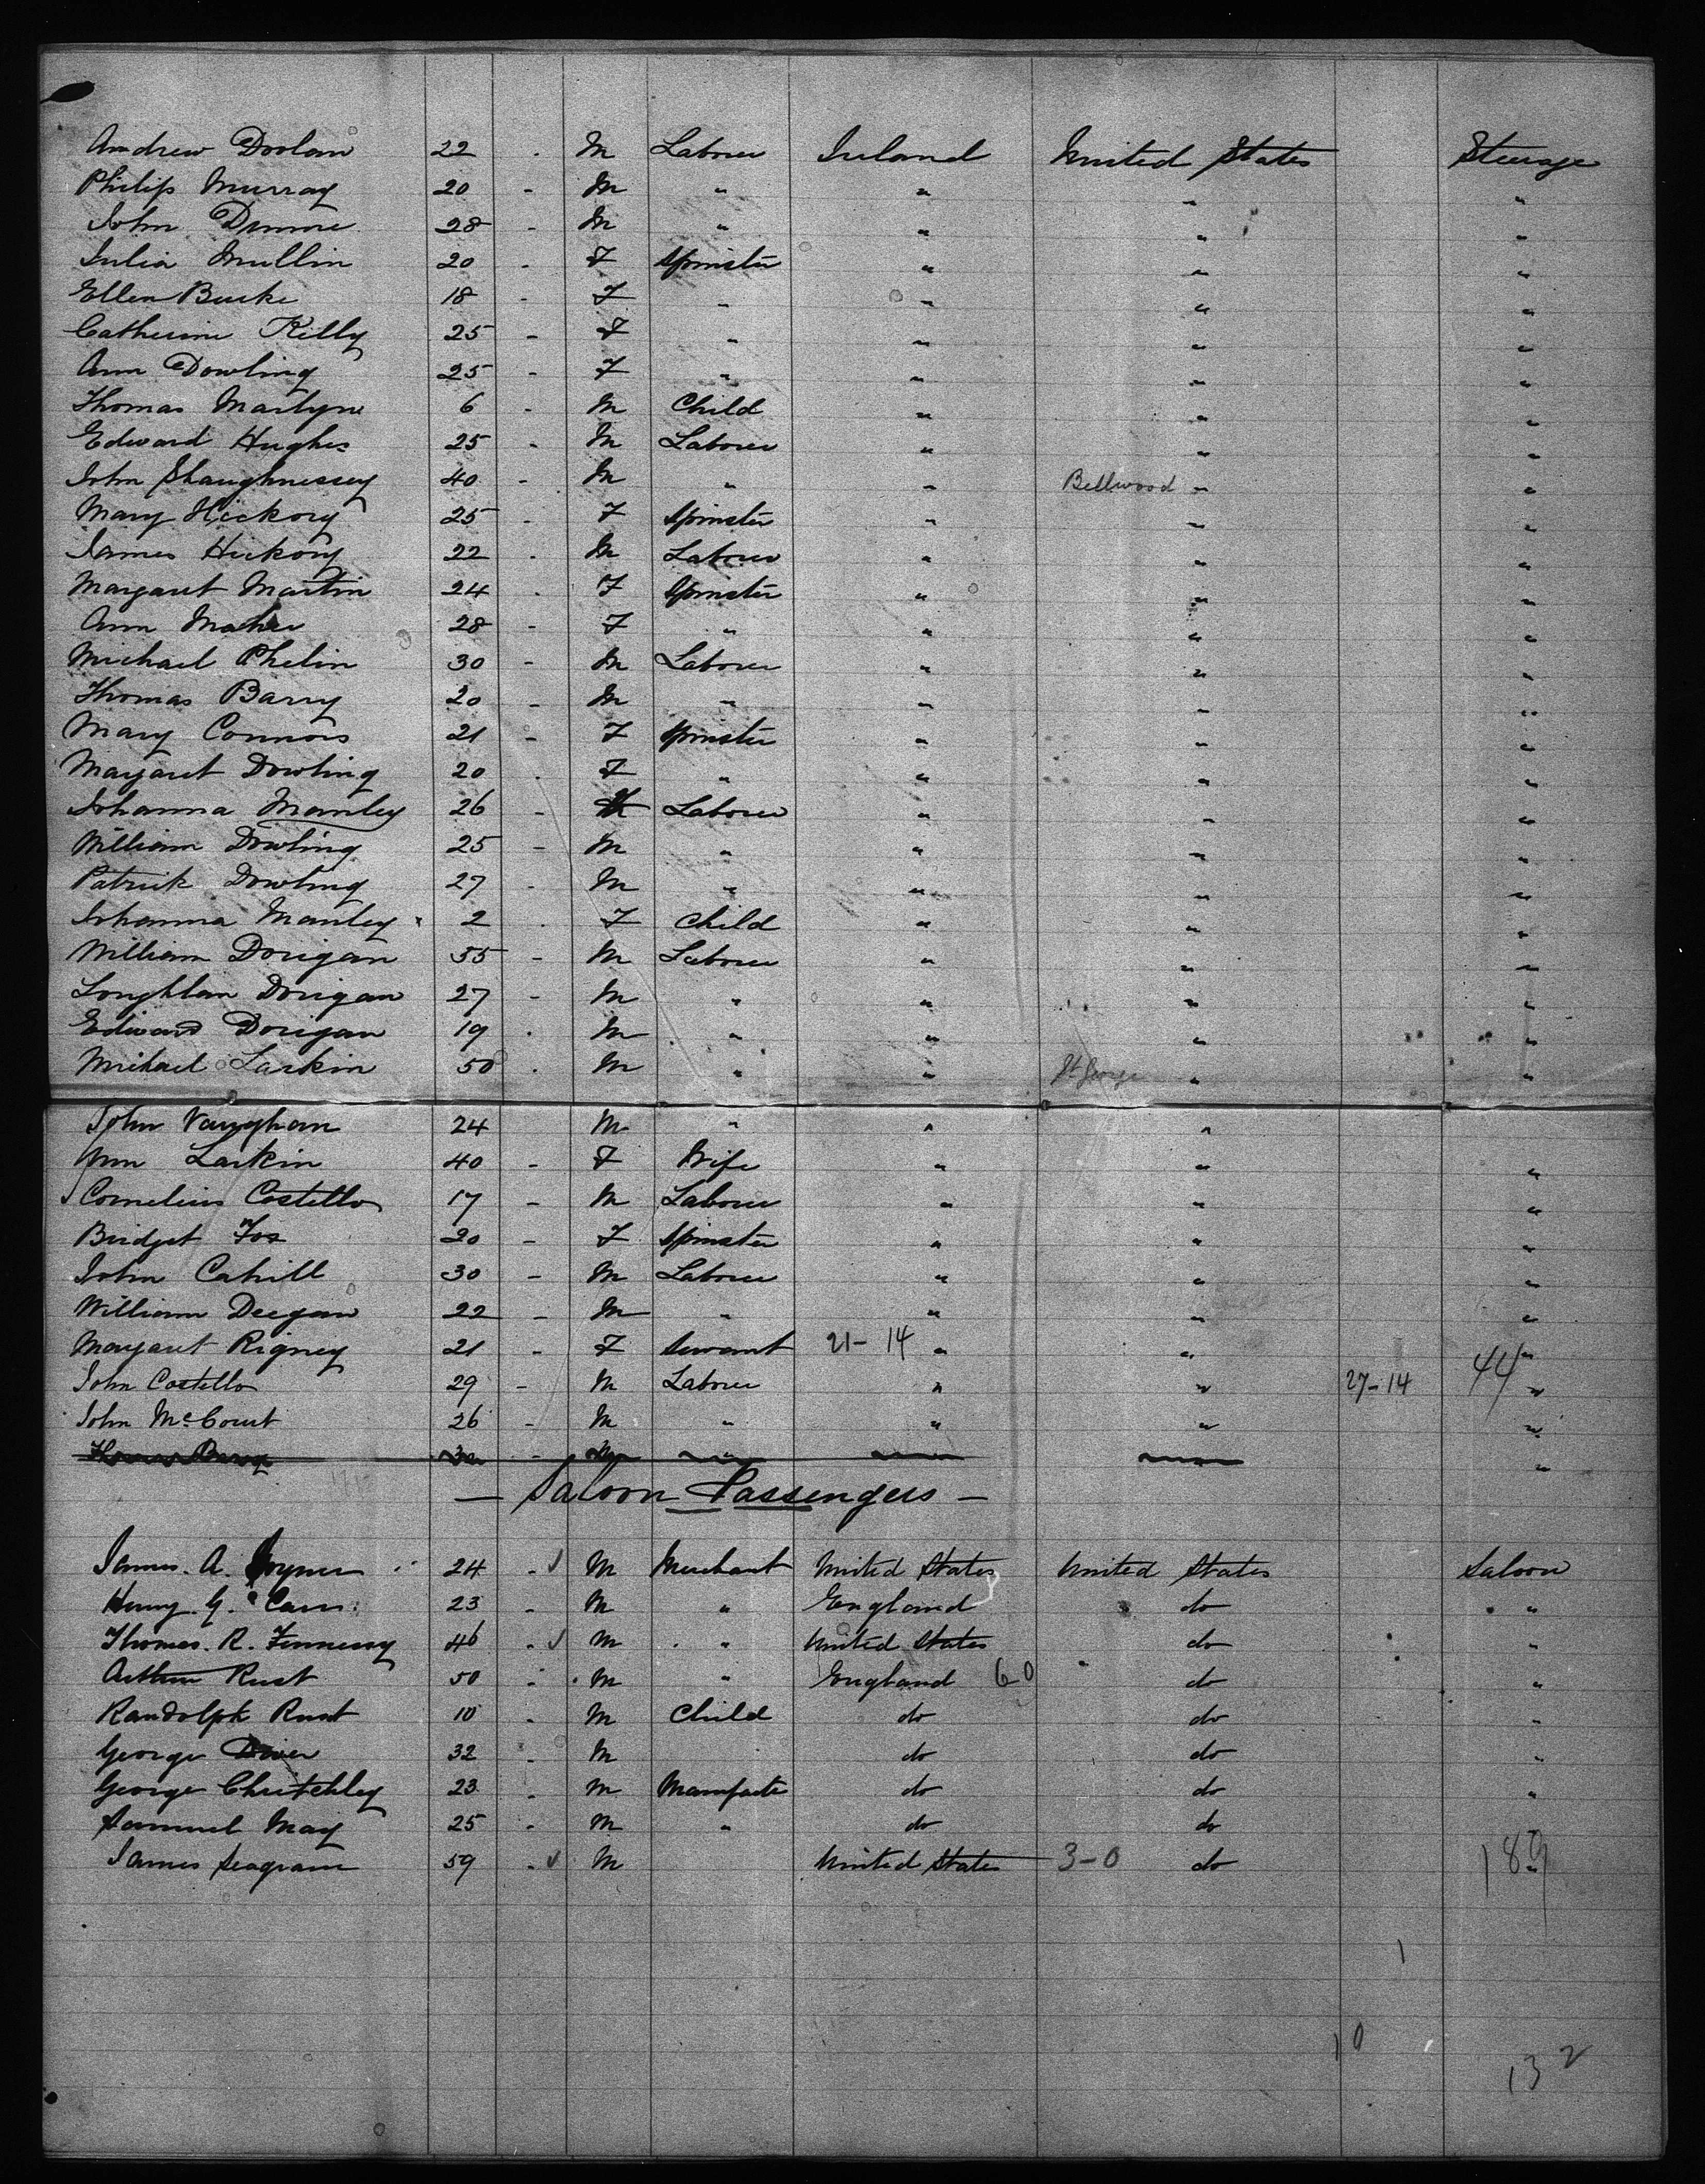 Andrew Doolan 22 - M Laborer Ireland United States Steerage
Philip Murray 20 - M " " " "
John Dunne 28 - M " " " "
Julia Mullin 20 - F Spinster " " "
Ellen Burke 18 - F " " " "
Catherine Kelly 25 - F " " " "
Ann Dowling 25 - F " " " "
Thomas Martyn 6 - M Child " " "
Edward Hughes 25 - M Laborer " " "
John Shaughnessey 40 - M " " Bellwood " "
Mary Hickory 25 - F Spinster " " "
James Hickory 22 - M Laborer " " "
Margaret Martin 24 - F Spinster " " "
Ann Maher 28 - F " " " "
Michael Phelin 30 - M Laborer " " "
Thomas Barry 20 - M " " " "
Mary Connors 21 - F Spinster " " "
Margaret Dowling 20 - F " " " "
Johanna Manley 26 - Laborer " " "
William Dowling 25 - M " " " "
Patrick Dowling 27 - M " " " "
Johanna Manley 2 - F Child " " "
William Dorigan 55 - M Laborer " " "
Loughlan Dorigan 27 - M " " " "
Edward Dorigan 19 - M " " " "
Michael Larkin 50 - M " " St George " "
John Vaughan 24 M " " "
Ann Larkin 40 - F Wife " " "
Cornelius Costello 17 - M Laborer " " "
Bridget Fox 20 - F Spinster " " "
John Cahill 30 - M Laborer " " "
William Deegan 22 - M " " " "
Margaret Rigney 21 - F Servant 21-14 " " "
John Costello 29 - M Laborer " " 27-14 44 "
John McCourt 26 - M " " " "
- Saloon Passengers -
James. A. Joyner 24 - M Merchant United States United States Saloon
Henry. G. Carr 23 - M " England do "
Thomas. R. Fennessy 46 - M " United States do "
Arthur Rust 50 - M " England 6-0 do "
Randolph Rust 10 - M Child do do "
George 32 - M do do "
George Chritchley 23 M Manufactr do do "
Samuel May 25 - M " do do "
James Seagram 59 - M United States 3-0 do 189
1
10
132